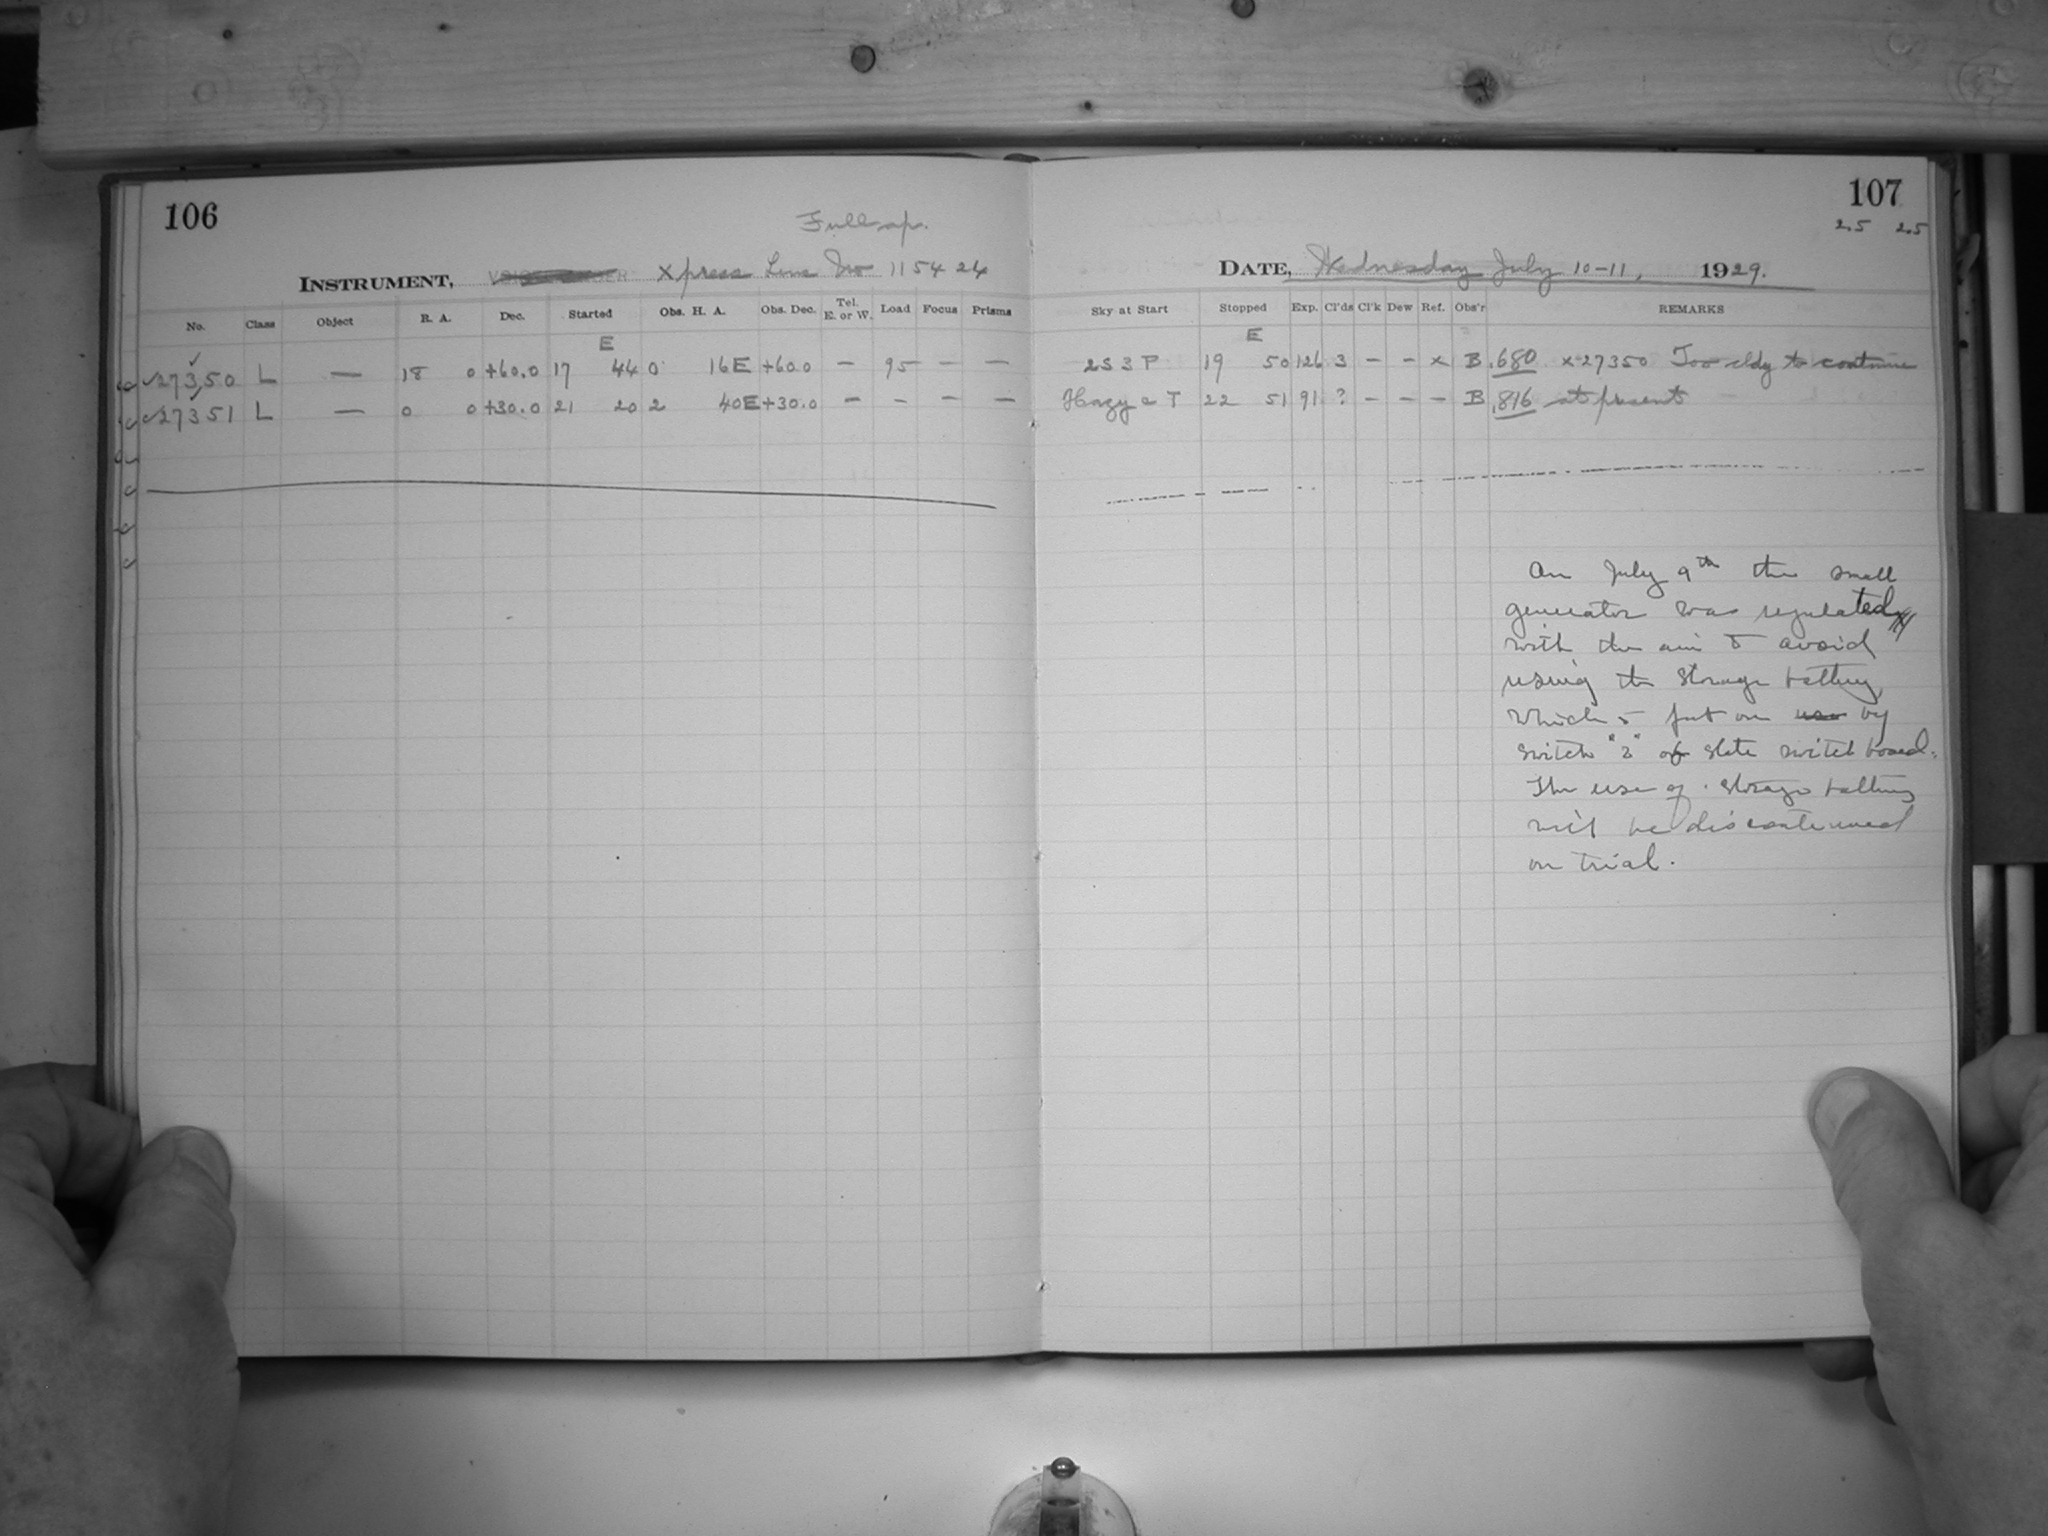 106
Full ap.
INSTRUMENT, Xpress Lens No 115424
No. Class Object R. A. Dec. Started Obs. H. A. Obs. Dec. Tel. E. or W. Load Focus Prisms
E
27350 L — 18 0 +60.0 17 44 0 16E +60.0 — 95 — —
27351 L — 0 0 +30.0 21 20 2 40E +30.0 — — — —
107
2.5 2.5
DATE, Wednesday July 10-11, 1929.
Sky at Start Stopped Exp. Cl'ds Cl'k Dew Ref. Obs'r REMARKS
E
2S 3 P 19 50 126 3 — — x B .680 x 27350 Too cldy to continue
Hazy c T 22 51 91 ? — — — B .816 at present
On July 9th the small
generator was regulated
with the aim to avoid
using the storage battery
which is put on use by
switch "2" of slate switch board.
The use of storage battery
will be discontinued
on trial.